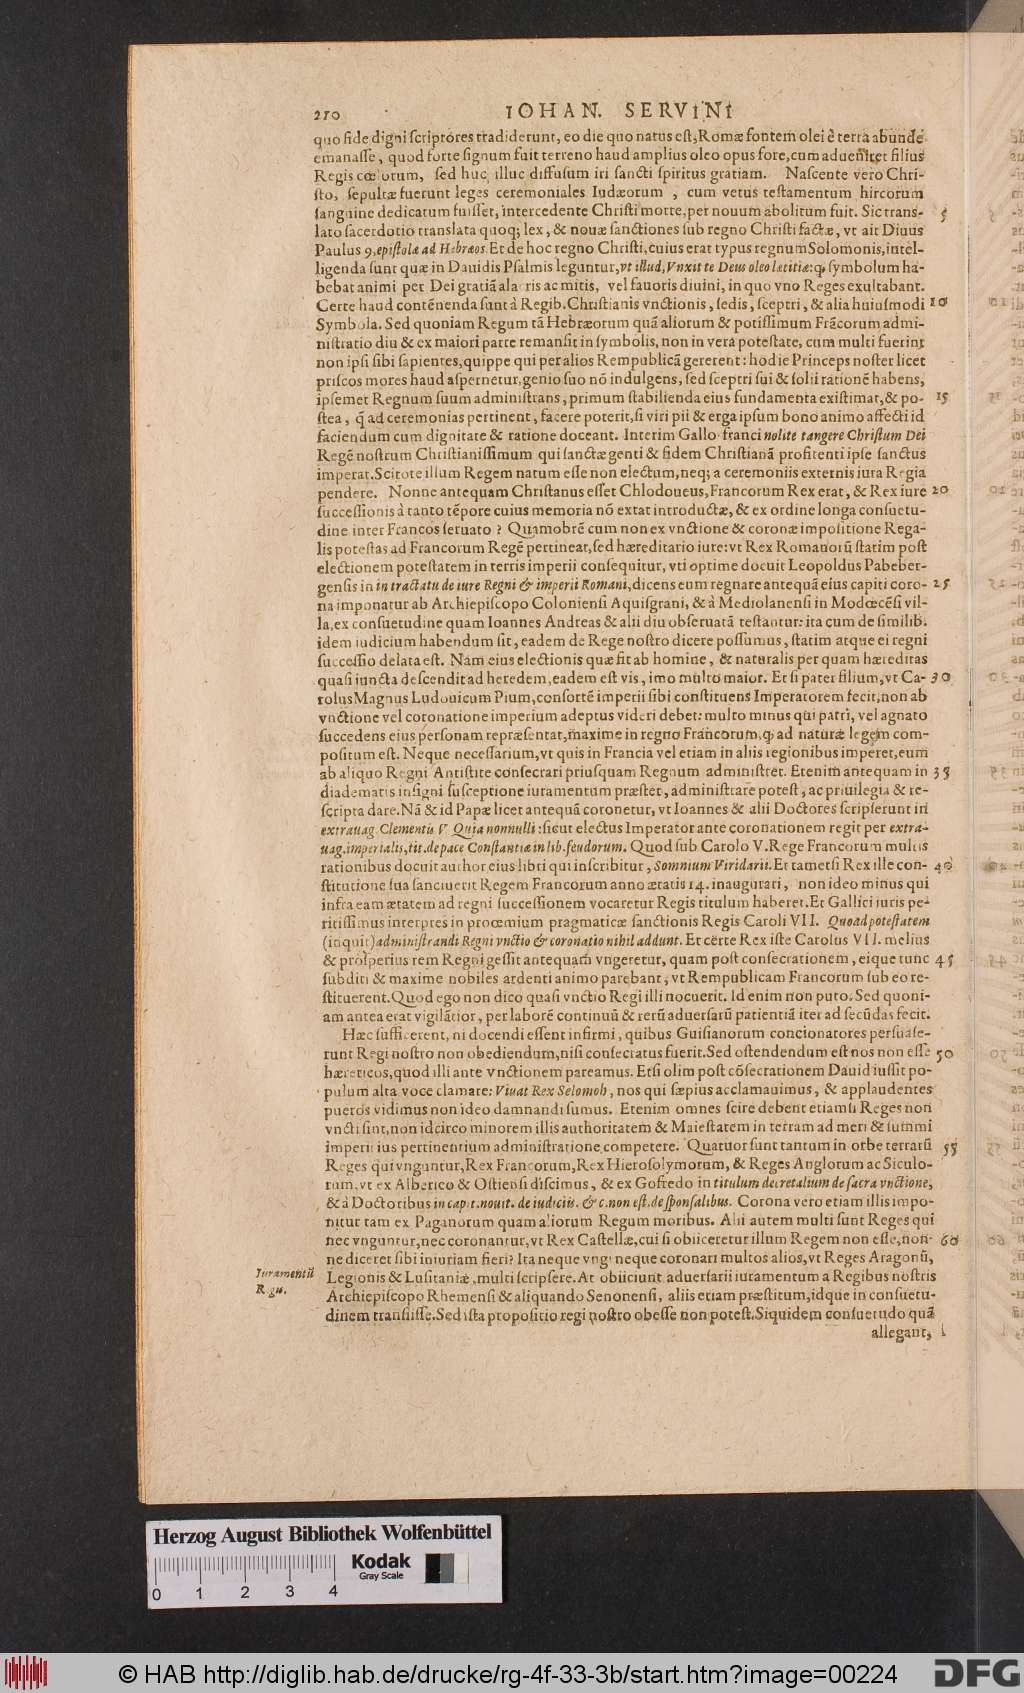 210 IOHAN. SERVINI
quo fide digni scriptores tradiderunt, eo die quo natus est, Romæ fontem olei è terra abunde
emanasse, quod forte signum fuit terreno haud amplius oleo opus fore, cum adueniret filius
Regis cœlorum, sed huc illuc diffusum iri sancti spiritus gratiam. Nascente vero Chri-
sto, sepultæ fuerunt leges ceremoniales Iudæorum, cum vetus testamentum hircorum
sanguine dedicatum fuisset, intercedente Christi morte, per nouum abolitum fuit. Sic trans- 5
lato sacerdotio translata quoq; lex, & nouæ sanctiones sub regno Christi factæ, vt ait Diuus
Paulus 9. epistolæ ad Hebræos. Et de hoc regno Christi, cuius erat typus regnum Solomonis, intel-
ligenda sunt quæ in Dauidis Psalmis leguntur, vt illud, Vnxit te Deus oleo lætitiæ: ꝙ symbolum ha-
bebat animi per Dei gratiā alacris ac mitis, vel fauoris diuini, in quo vno Reges exultabant.
Certe haud contēnenda sunt à Regib. Christianis vnctionis, sedis, sceptri, & alia huiusmodi 10
Symbola. Sed quoniam Regum tā Hebræorum quā aliorum & potissimum Frācorum admi-
nistratio diu & ex maiori parte remansit in symbolis, non in vera potestate, cum multi fuerint
non ipsi sibi sapientes, quippe qui per alios Rempublicā gererent: hodie Princeps noster licet
priscos mores haud aspernetur, genio suo nō indulgens, sed sceptri sui & solii rationē habens,
ipsemet Regnum suum administrans, primum stabilienda eius fundamenta existimat, & po- 15
stea, q̄ ad ceremonias pertinent, facere poterit, si viri pii & erga ipsum bono animo affecti id
faciendum cum dignitate & ratione doceant. Interim Gallo-franci nolite tangere Christum Dei
Regē nostrum Christianissimum qui sanctæ genti & fidem Christianā profitenti ipse sanctus
imperat. Scitote illum Regem natum esse non electum, neq; a ceremoniis externis iura Regia
pendere. Nonne antequam Christanus esset Chlodoueus, Francorum Rex erat, & Rex iure 20
successionis à tanto tēpore cuius memoria nō extat introductæ, & ex ordine longa consuetu-
dine inter Francos seruato? Quamobrē cum non ex vnctione & coronæ impositione Rega-
lis potestas ad Francorum Regē pertineat, sed hæreditario iure: vt Rex Romanorū statim post
electionem potestatem in terris imperii consequitur, vti optime docuit Leopoldus Pabeber-
gensis in in tractatu de iure Regni & imperii Romani, dicens eum regnare antequā eius capiti coro- 25
na imponatur ab Archiepiscopo Coloniensi Aquisgrani, & à Mediolanensi in Modœcēsi vil-
la, ex consuetudine quam Ioannes Andreas & alii diu obseruatā testantur: ita cum de similib.
idem iudicium habendum sit, eadem de Rege nostro dicere possumus, statim atque ei regni
successio delata est. Nam eius electionis quæ fit ab homine, & naturalis per quam hæreditas
quasi iuncta descendit ad heredem, eadem est vis, imo multo maior. Et si pater filium, vt Ca- 30
rolus Magnus Ludouicum Pium, consortē imperii sibi constituens Imperatorem fecit, non ab
vnctione vel coronatione imperium adeptus videri debet: multo minus qui patri, vel agnato
succedens eius personam repræsentat, maxime in regno Francorum, ꝙ ad naturæ legem com-
positum est. Neque necessarium, vt quis in Francia vel etiam in aliis regionibus imperet, eum
ab aliquo Regni Antistite consecrari priusquam Regnum administret. Etenim antequam in 35
diadematis insigni susceptione iuramentum præstet, administrare potest, ac priuilegia & re-
scripta dare. Nā & id Papæ licet antequā coronetur, vt Ioannes & alii Doctores scripserunt in
extrauag. Clementis V Quia nonnulli: sicut electus Imperator ante coronationem regit per extra-
uag. imperialis, tit. de pace Constantiæ in lib. feudorum. Quod sub Carolo V. Rege Francorum multis
rationibus docuit author eius libri qui inscribitur, Somnium Viridarii. Et tametsi Rex ille con- 40
stitutione sua sanciuerit Regem Francorum anno ætatis 14. inaugurari, non ideo minus qui
infra eam ætatem ad regni successionem vocaretur Regis titulum haberet. Et Gallici iuris pe-
ritissimus interpres in proœmium pragmaticæ sanctionis Regis Caroli VII. Quoad potestatem
(inquit) administrandi Regni vnctio & coronatio nihil addunt. Et certe Rex iste Carolus VII. melius
& prosperius rem Regni gessit antequam vngeretur, quam post consecrationem, eique tunc 45
subditi & maxime nobiles ardenti animo parebant, vt Rempublicam Francorum sub eo re-
stituerent. Quod ego non dico quasi vnctio Regi illi nocuerit. Id enim non puto. Sed quoni-
am antea erat vigilātior, per laborē continuū & rerū aduersarū patientiā iter ad secūdas fecit.
Hæc sufficerent, ni docendi essent infirmi, quibus Guisianorum concionatores persuase-
runt Regi nostro non obediendum, nisi consecratus fuerit. Sed ostendendum est nos non esse 50
hæreticos, quod illi ante vnctionem pareamus. Etsi olim post cōsecrationem Dauid iussit po-
pulum alta voce clamare: Viuat Rex Selomoh, nos qui sæpius acclamauimus, & applaudentes
pueros vidimus non ideo damnandi sumus. Etenim omnes scire debent etiamsi Reges non
vncti sint, non idcirco minorem illis authoritatem & Maiestatem in terram ad meri & summi
imperii ius pertinentium administratione competere. Quatuor sunt tantum in orbe terrarū 55
Reges qui vnguntur, Rex Francorum, Rex Hierosolymorum, & Reges Anglorum ac Siculo-
rum, vt ex Alberico & Ostiensi discimus, & ex Gofredo in titulum decretalium de sacra vnctione,
& à Doctoribus in capit. nouit. de iudiciis. & c. non est. de sponsalibus. Corona vero etiam illis impo-
nitur tam ex Paganorum quam aliorum Regum moribus. Alii autem multi sunt Reges qui
nec vnguntur, nec coronantur, vt Rex Castellæ, cui si obiiceretur illum Regem non esse, non- 60
ne diceret sibi iniuriam fieri? Ita neque vngi neque coronari multos alios, vt Reges Aragonū,
Iuramentū Regis.
Legionis & Lusitaniæ, multi scripsere. At obiiciunt aduersarii iuramentum a Regibus nostris
Archiepiscopo Rhemensi & aliquando Senonensi, aliis etiam præstitum, idque in consuetu-
dinem transiisse. Sed ista propositio regi nostro obesse non potest. Siquidem consuetudo quā
allegant,
Herzog August Bibliothek Wolfenbüttel
Kodak
Gray Scale
0 1 2 3 4
© HAB http://diglib.hab.de/drucke/rg-4f-33-3b/start.htm?image=00224
DFG